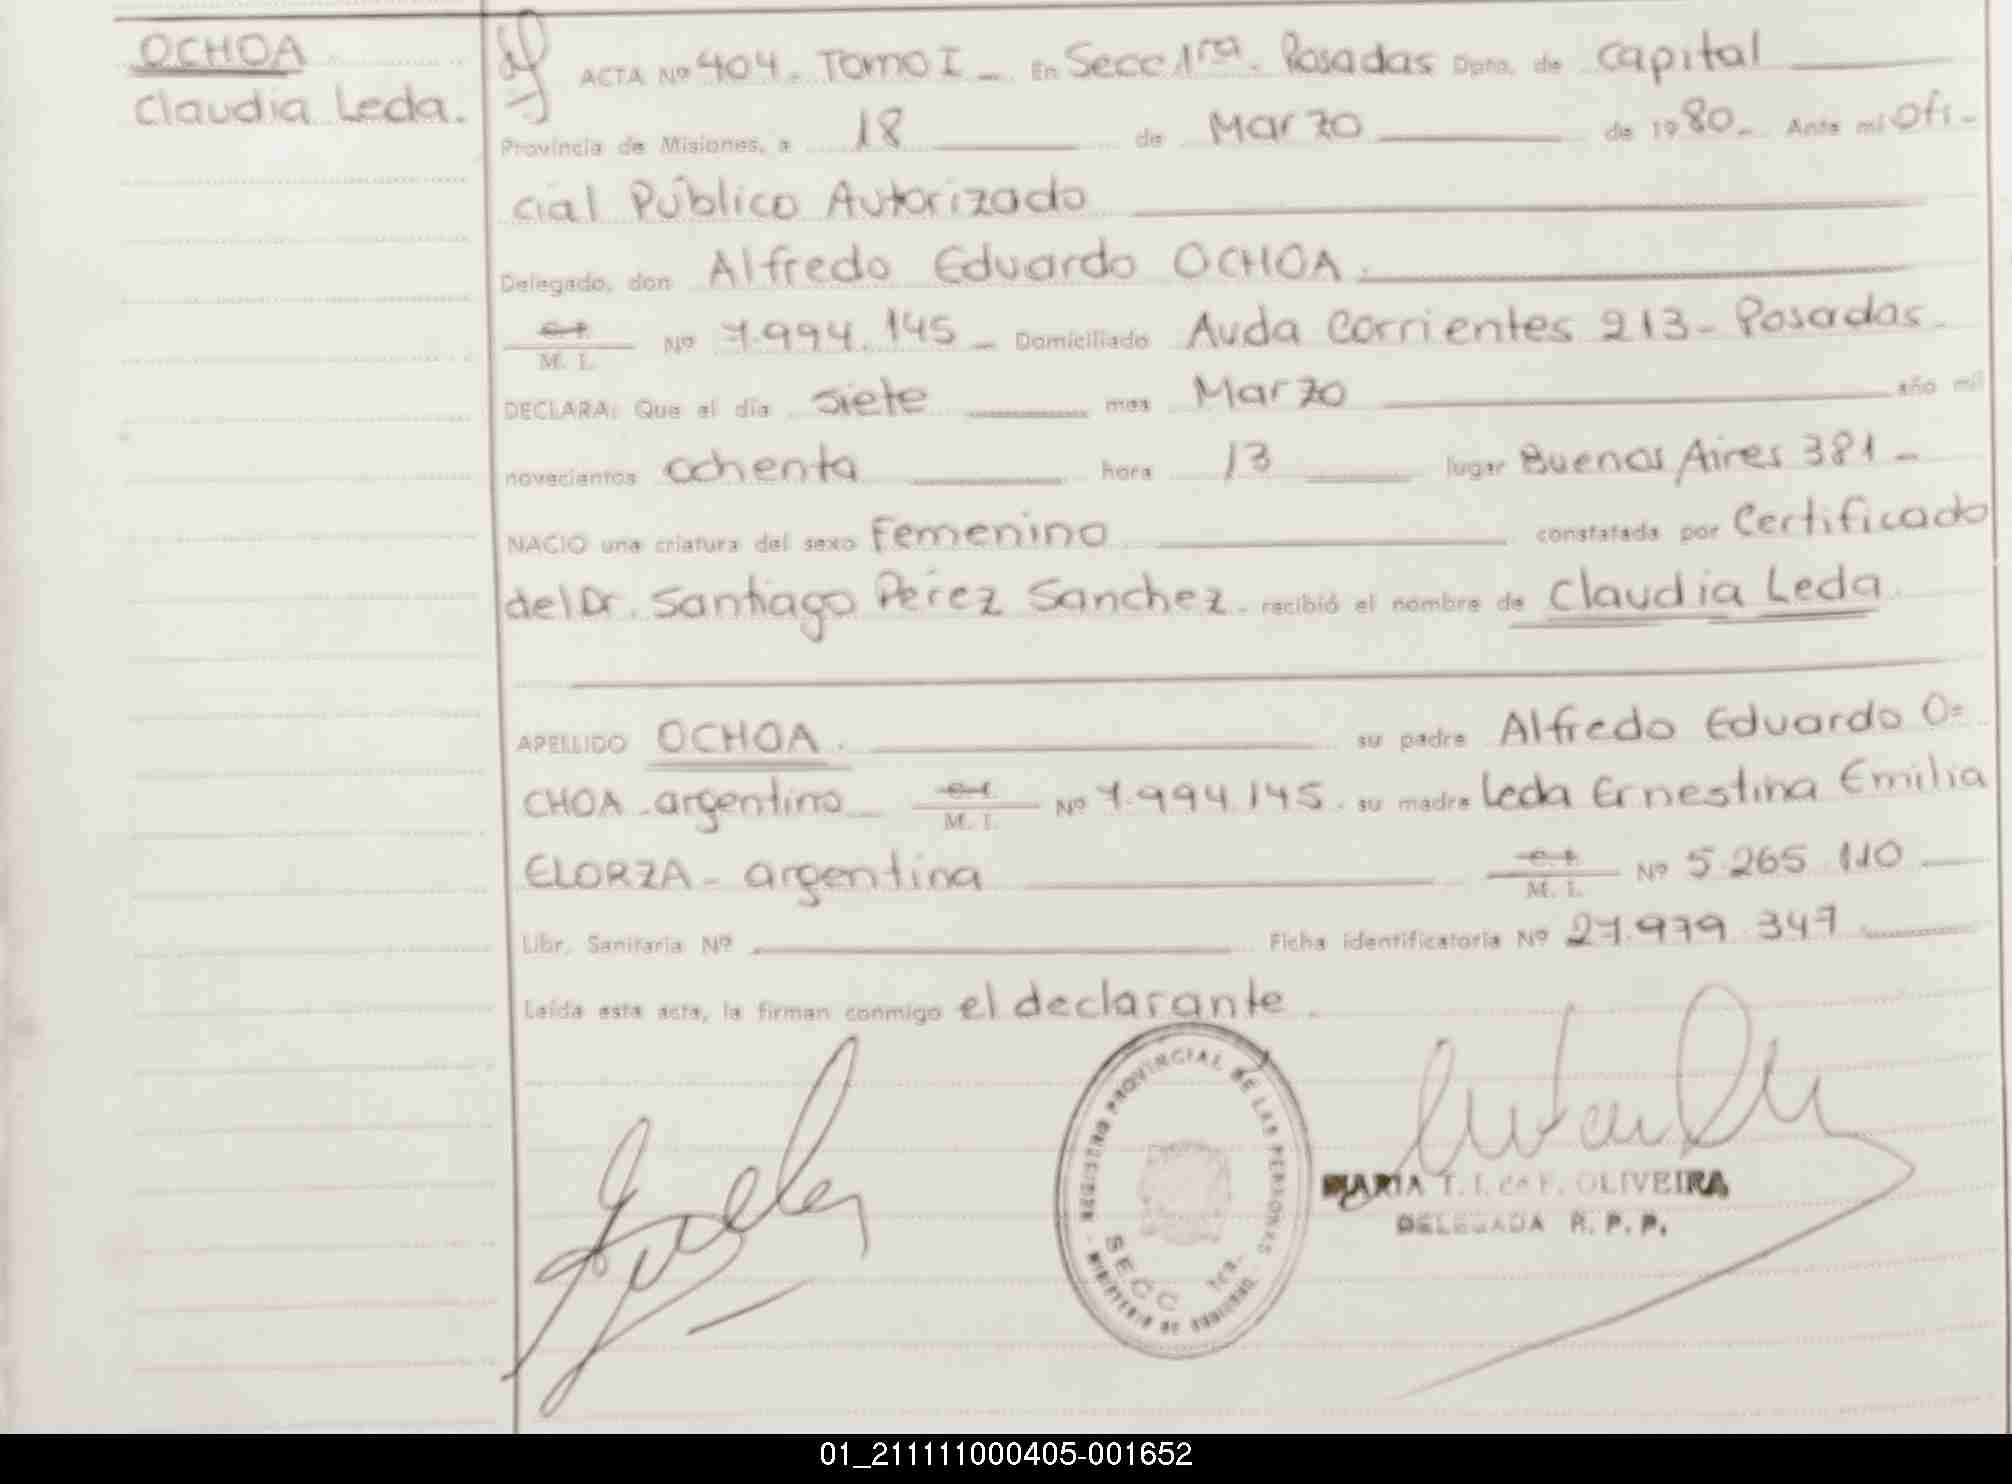 OCHOA
Claudia Leda.
ACTA Nº 404. Tomo I - En Secc 1ra. Posadas Dpto. de Capital
Provincia de Misiones, a 18 de Marzo de 1980. Ante mi Ofi-
cial Público Autorizado
Delegado, don Alfredo Eduardo OCHOA.
C.I.
M. I. Nº 7.994.145 - Domiciliado Avda Corrientes 213 - Posadas -
DECLARA: Que el día siete mes Marzo año mil
novecientos ochenta hora 13 lugar Buenos Aires 381 -
NACIO una criatura del sexo Femenino constatada por Certificado
del Dr. Santiago Perez Sanchez - recibió el nombre de Claudia Leda.
APELLIDO OCHOA. su padre Alfredo Eduardo O=
CHOA - argentino C.I. M. I. Nº 7.994.145. su madre Leda Ernestina Emilia
ELORZA - argentina C.I. M. I. Nº 5.265.110
Libr. Sanitaria Nº Ficha identificatoria Nº 27.979.347
Leída esta acta, la firman conmigo el declarante.
REGISTRO PROVINCIAL DE LAS PERSONAS
SECC 1ra.
- MINISTERIO DE GOBIERNO -
MARIA T. I. de F. OLIVEIRA
DELEGADA R. P. P.
01_211111000405-001652